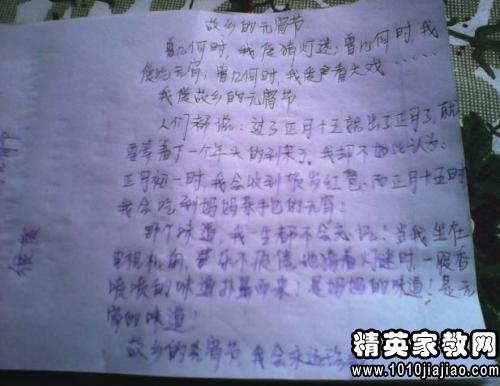 故乡的元宵节
曾几何时,我爱猜灯迷;曾几何时我
爱吃元宵;曾几何时,我爱看大戏……
我爱故乡的元宵节
人们都说:过了正月十五就出了正月了,就
要等着下一个年头的到来了。我却不如此认为:
正月初一时,我会收到压岁红包,而正月十五时
我会吃到妈妈亲手包的元宵!
那个味道,我一生都不会忘记!当我坐在
电视机前,着乐不疲倦地猜着灯迷时,一股香
喷喷的味道扑鼻而来!是妈妈的味道!是元
宵的味道!
故乡的元宵节 我会永远
精英家教网
www.1010jiajiao.com